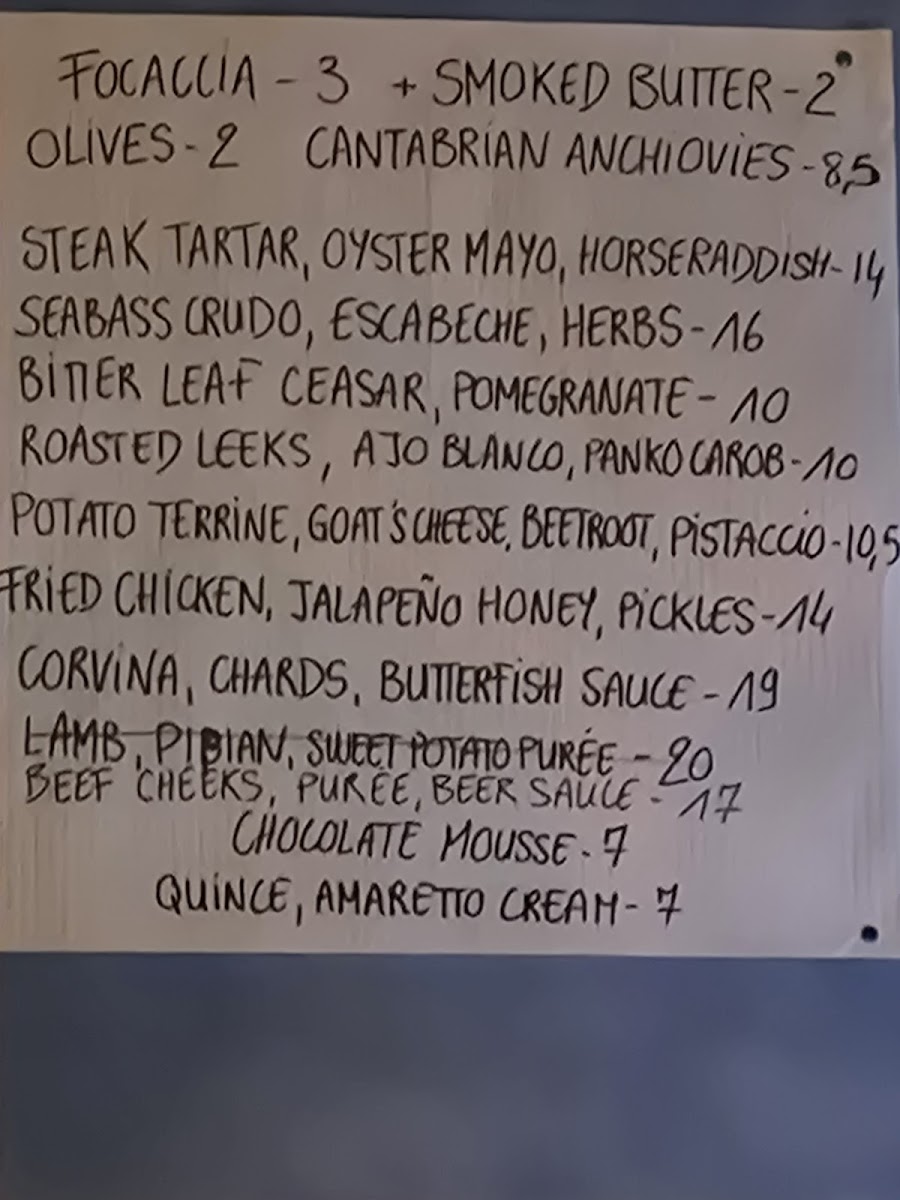 FOCACCIA - 3 + SMOKED BUTTER - 2
OLIVES - 2 CANTABRIAN ANCHIOVIES - 8,5
STEAK TARTAR, OYSTER MAYO, HORSERADDISH - 14
SEABASS CRUDO, ESCABECHE, HERBS - 16
BITTER LEAF CEASAR, POMEGRANATE - 10
ROASTED LEEKS, AJO BLANCO, PANKO CAROB - 10
POTATO TERRINE, GOAT'S CHEESE, BEETROOT, PISTACCIO - 10,5
FRIED CHICKEN, JALAPEÑO HONEY, PICKLES - 14
CORVINA, CHARDS, BUTTERFISH SAUCE - 19
LAMB, PIPIAN, SWEET POTATO PURÉE - 20
BEEF CHEEKS, PURÉE, BEER SAUCE - 17
CHOCOLATE MOUSSE - 7
QUINCE, AMARETTO CREAM - 7